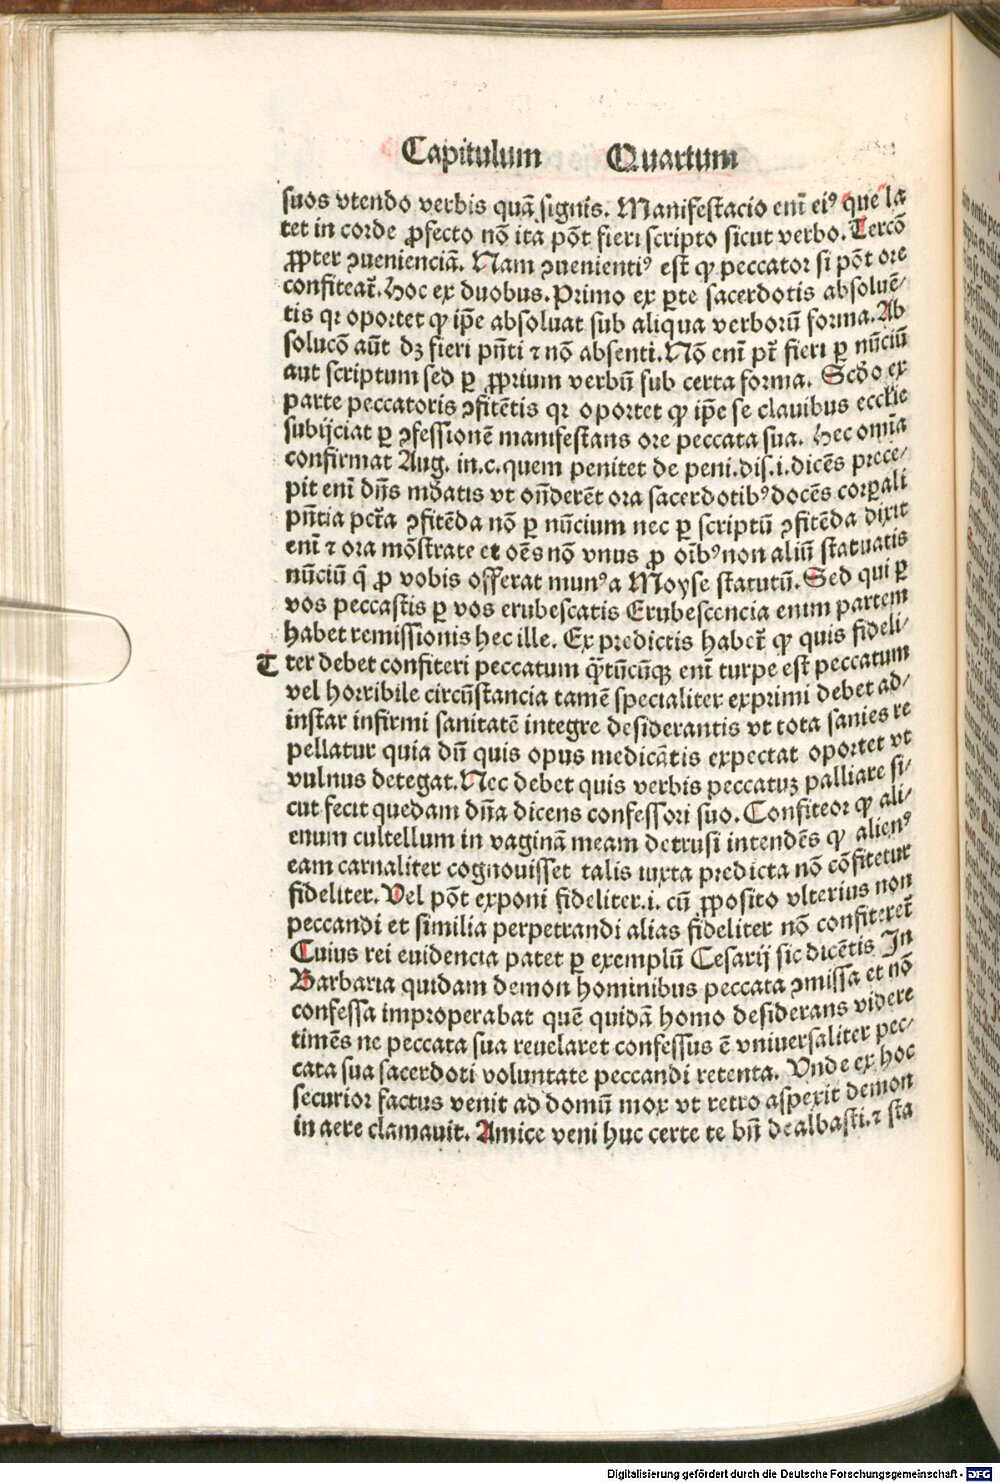 Capitulum Quartum
suos vtendo verbis quā signis. Manifestacio eni᷉ eiꝰ que la
tet in corde ꝓfecto nō ita pōt fieri scripto sicut verbo. Tercō
ꝓpter ꝯuenienciā. Nam ꝯuenientiꝰ est ꝙ peccator si pōt ore
confiteat᷑. Hoc ex duobus. Primo ex ꝑte sacerdotis absoluē/
tis qꝛ oportet ꝙ ip̄e absoluat sub aliqua verborū forma. Ab
solucō aūt dꝫ fieri pn̄ti ⁊ nō absenti. Nō eni᷉ pt᷑ fieri ꝑ nūciū
aut scriptum sed ꝑ ꝓprium verbū sub certa forma. Scd̄o ex
parte peccatoris ꝯfitētis qꝛ oportet ꝙ ip̄e se clauibus eccl̄ie
subijciat ꝑ ꝯfessionē manifestans ore peccata sua. Hec omīa
confirmat Aug. in. c. quem penitet de peni. dis. i. dicēs prece/
pit eni᷉ dn̄s mūdatis vt on̄derēt ora sacerdotibꝰ docēs corꝑali
pn̄tia pctā ꝯfitēda nō ꝑ nūcium nec ꝑ scriptū ꝯfitēda dixit
eni᷉ ⁊ ora mōstrate et oēs nō vnus ꝓ oībꝰ non aliū statuatis
nūciū q̄ ꝓ vobis offerat munꝰ a Moyse statutū. Sed qui ꝑ
vos peccastis ꝑ vos erubescatis Erubescencia enim partem
habet remissionis hec ille. Ex predictis habet᷑ ꝙ quis fideli/
T ter debet confiteri peccatum q̄tūcūqꝫ eni᷉ turpe est peccatum
vel horribile circūstancia tamē specialiter exprimi debet ad/
instar infirmi sanitatē integre desiderantis vt tota sanies re
pellatur quia dū quis opus medicātis expectat oportet vt
vulnus detegat. Nec debet quis verbis peccatuꝫ palliare si/
cut fecit quedam dn̄a dicens confessori suo. Confiteor ꝙ ali/
enum cultellum in vaginā meam detrusi intendēs ꝙ alienꝰ
eam carnaliter cognouisset talis iuxta predicta nō cōfitetur
fideliter. Vel pōt exponi fideliter. i. cū ꝓposito vlterius non
peccandi et similia perpetrandi alias fideliter nō confiteret᷑
Cuius rei euidencia patet ꝑ exemplū Cesarij sic dicētis In
Barbaria quidam demon hominibus peccata ꝯmissa et nō
confessa improperabat quē quidā homo desiderans videre
timēs ne peccata sua reuelaret confessus ē vniuersaliter pec/
cata sua sacerdoti voluntate peccandi retenta. Vnde ex hoc
securior factus venit ad domū mox vt retro aspexit demon
in aere clamauit. Amice veni huc certe te bn̄ dealbasti. ⁊ sta
Digitalisierung gefördert durch die Deutsche Forschungsgemeinschaft - DFG